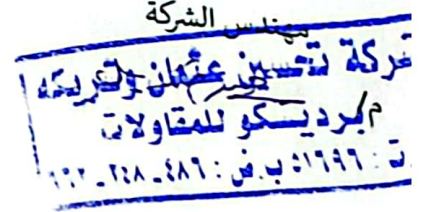 مهندس الشركة
شركة تحسين عثمان وشريكه
م/ برديسكو للمقاولات
ت : ٥١٦٩٦ ب.ض : ٤٨٦ - ٢٤٨ -